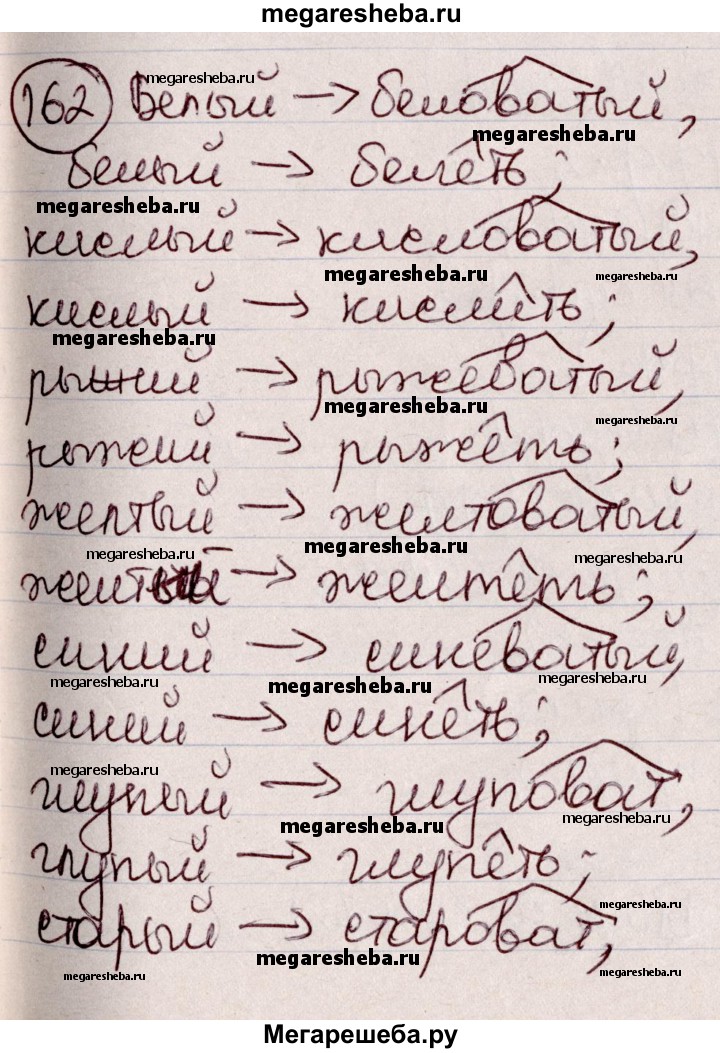 megaresheba.ru
162 Белый → беловатый,
megaresheba.ru
megaresheba.ru
белый → белеть;
megaresheba.ru
кислый → кисловатый,
megaresheba.ru
megaresheba.ru
кислый → кислить;
megaresheba.ru
рыжий → рыжеватый,
megaresheba.ru
megaresheba.ru
рыжий → рыжеть;
желтый → желтоватый,
megaresheba.ru
megaresheba.ru
megaresheba.ru
желтый → желтеть;
синий → синеватый,
megaresheba.ru
megaresheba.ru
megaresheba.ru
синий → синеть;
megaresheba.ru
глупый → глуповат,
megaresheba.ru
megaresheba.ru
глупый → глупеть;
megaresheba.ru
старый → староват,
megaresheba.ru
megaresheba.ru
megaresheba.ru
Мегарешеба.ру